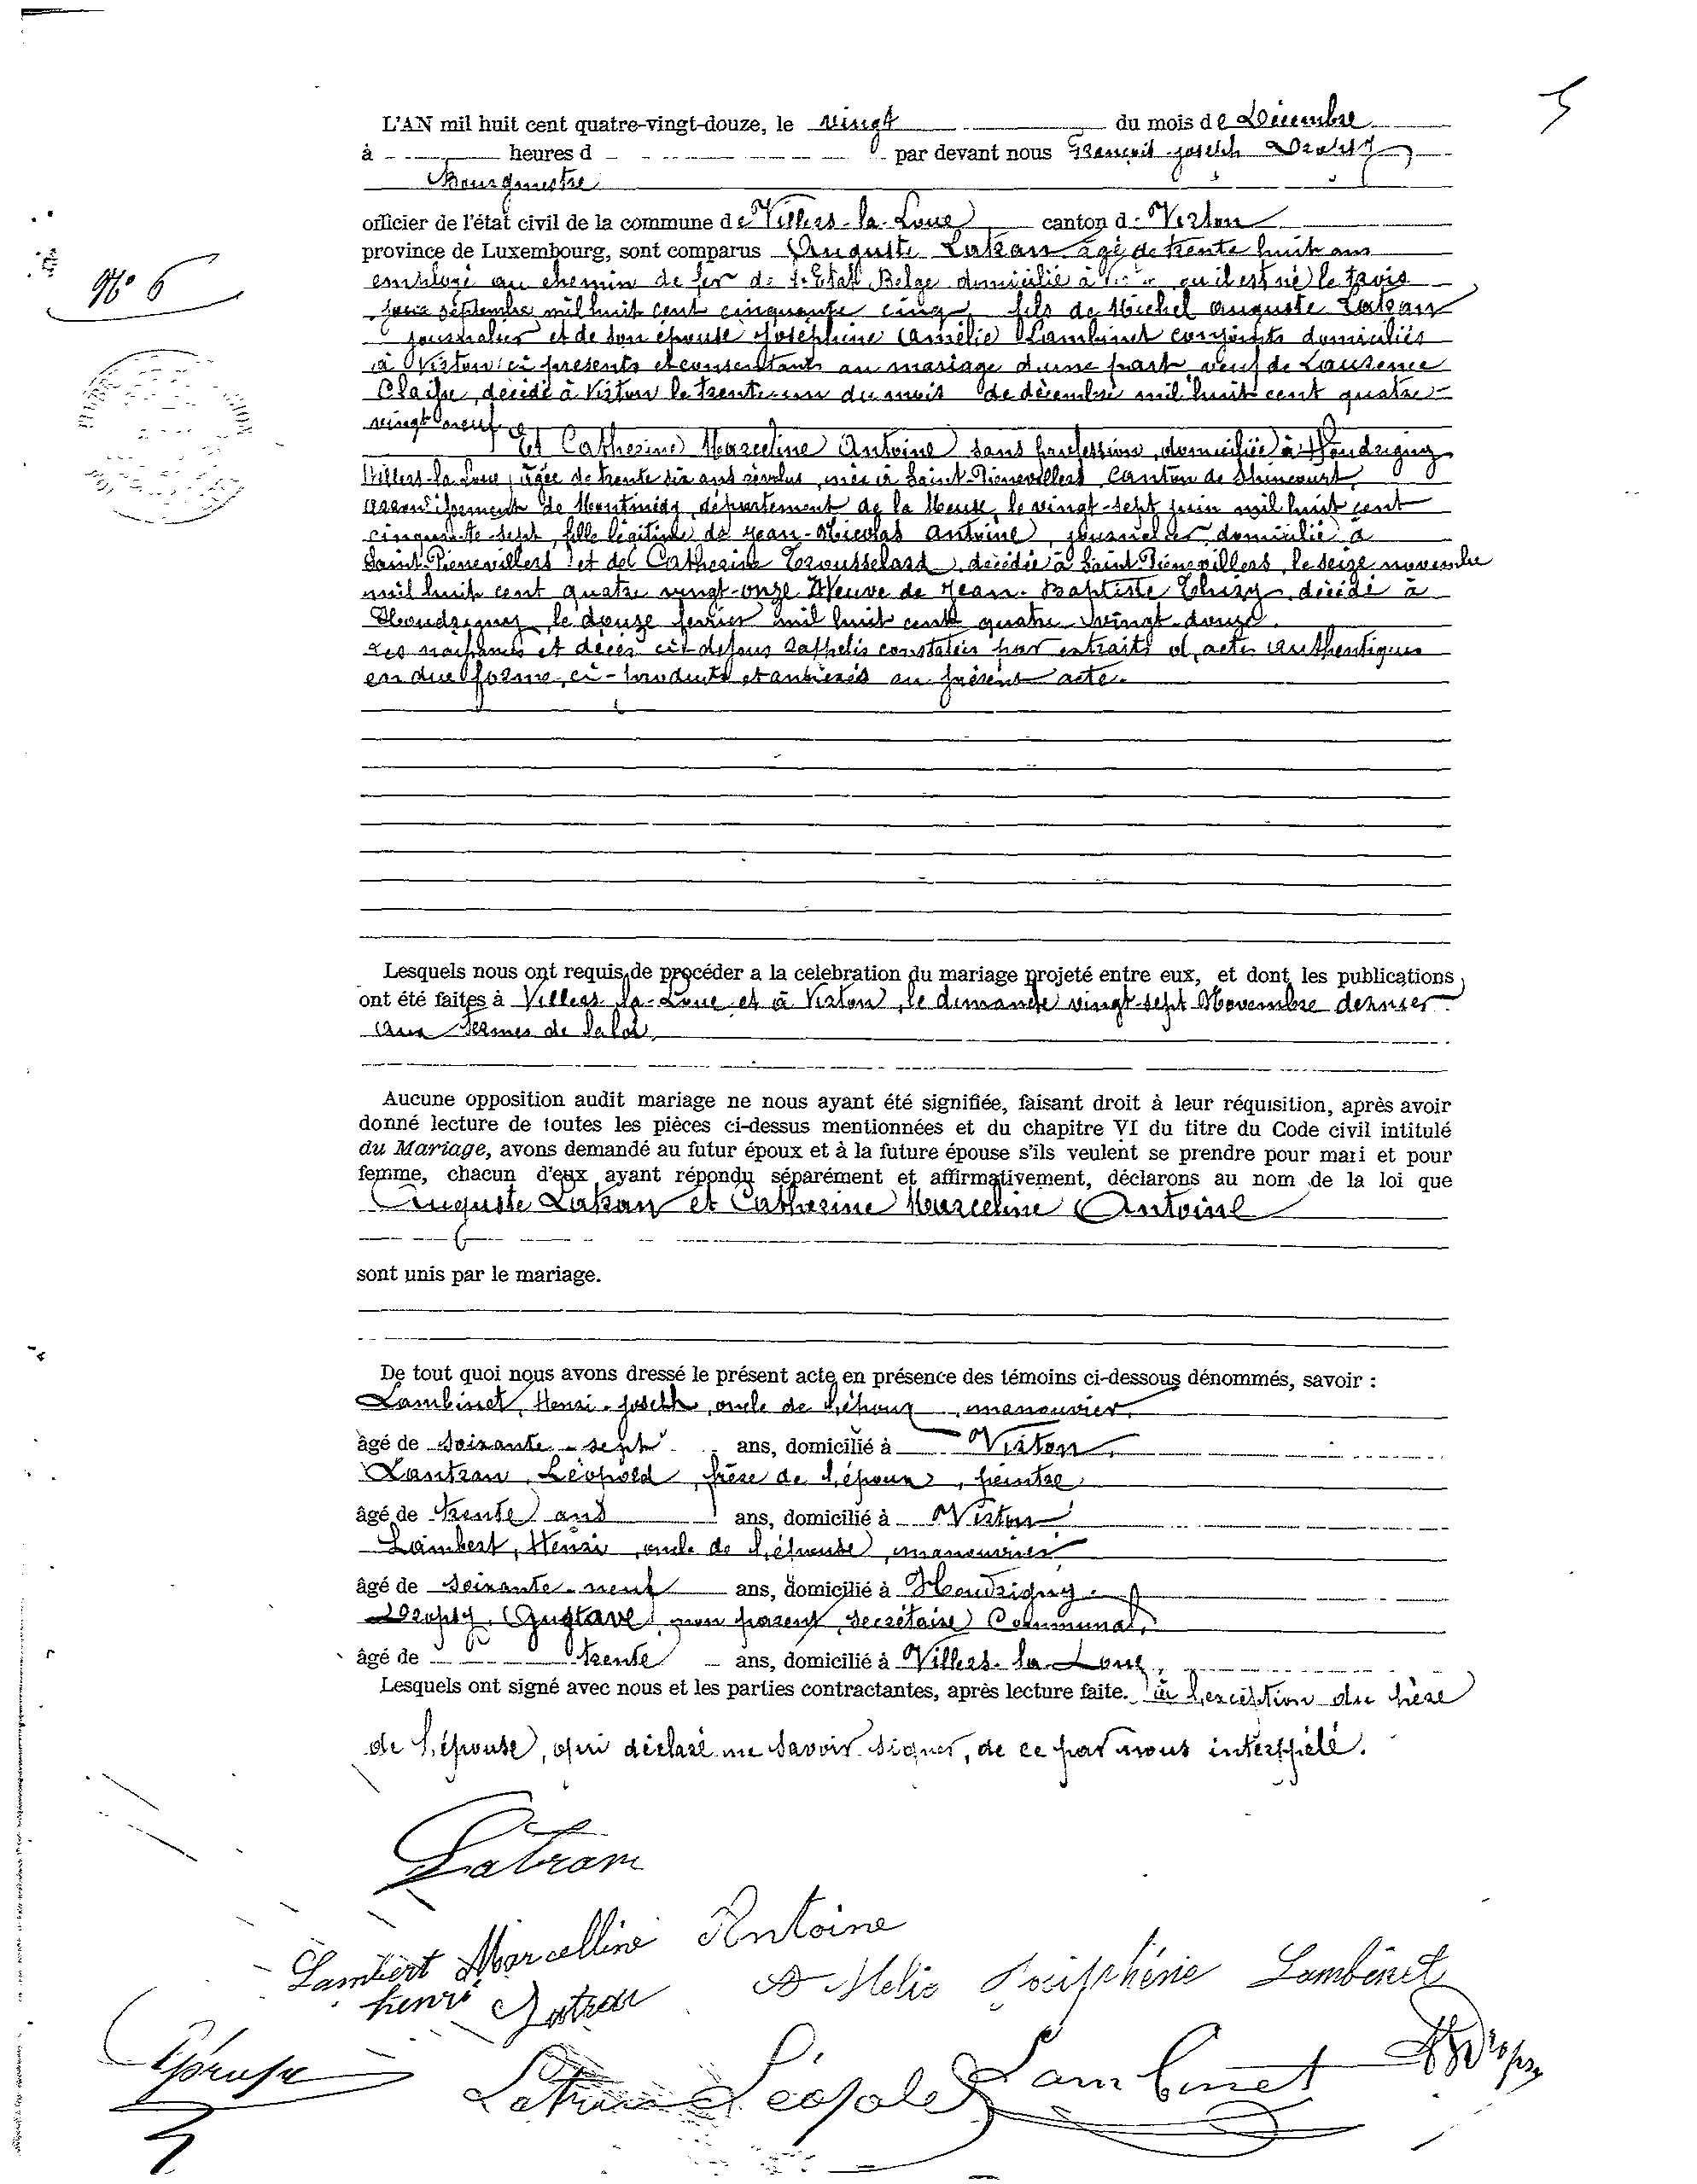 L'AN mil huit cent quatre-vingt-douze, le vingt du mois de Décembre
à heures d par devant nous François-joseph Dropsy
Bourgmestre
officier de l'état civil de la commune de Villers-la-Loue canton d: Virton
province de Luxembourg, sont comparus Auguste Latran âgé de trente huit ans
N° 6
employé au chemin de fer de l'Etat Belge domicilié à où il est né le trois
septembre mil huit cent cinquante cinq fils de Michel Auguste Latran
journalier et de son épouse Joséphine Amélie Lambinet conjoints domiciliés
à Virton ci présents et consentants au mariage d'une part, veuf de Laurence
Claisse, décédé à Virton le trente-un du mois de décembre mil huit cent quatre-
vingt neuf
Et Catherine Marceline Antoine sans profession, domiciliée à Houdrigny
Villers-la-Loue, âgée de trente six ans révolus, née à Saint-Pierrevillers Canton de Spincourt
arrondissement de Montmédy, département de la Meuse, le vingt-sept juin mil huit cent
cinquante-sept, fille légitime de Jean-Nicolas Antoine, journalier, domicilié à
Saint-Pierrevillers et de Catherine Trousselard, décédée à Saint Pierrevillers, le seize novembre
mil huit cent quatre vingt-onze Veuve de Jean-Baptiste Thiry, décédé à
Houdrigny, le douze février mil huit cent quatre vingt-douze.
Les naissances et décès ci-dessus rappelés constatés par extraits d'actes authentiques
en due forme, ci-produits et annexés au présent acte.
Lesquels nous ont requis de procéder a la celebration du mariage projeté entre eux, et dont les publications
ont été faites à Villers-la-Loue et à Virton, le dimanche vingt-sept Novembre dernier
aux termes de la loi
Aucune opposition audit mariage ne nous ayant été signifiée, faisant droit à leur réquisition, après avoir
donné lecture de toutes les pièces ci-dessus mentionnées et du chapitre VI du titre du Code civil intitulé
du Mariage, avons demandé au futur époux et à la future épouse s'ils veulent se prendre pour mari et pour
femme, chacun d'eux ayant répondu séparément et affirmativement, déclarons au nom de la loi que
Auguste Latran et Catherine Marceline Antoine
sont unis par le mariage.
De tout quoi nous avons dressé le présent acte en présence des témoins ci-dessous dénommés, savoir :
Lambinet, Henri-joseph, oncle de l'époux, manouvrier,
âgé de soixante-sept ans, domicilié à Virton,
Lautran, Léopold, frère de l'époux, peintre
âgé de trente ans ans, domicilié à Virton
Lambert, Henri, oncle de l'épouse, manouvrier
âgé de soixante-neuf ans, domicilié à Houdrigny.
Dropsy, Gustave, non parent, secrétaire Communal,
âgé de trente ans, domicilié à Villers-la-Loue,
Lesquels ont signé avec nous et les parties contractantes, après lecture faite. à l'exception du père
de l'épouse, qui déclaré ne savoir signer, de ce par nous interpélé.
Latran
Marcelline Antoine
Lambert
henri Latran
A Melie Lambinet
Latran Léopold Lambinet
Dropsy